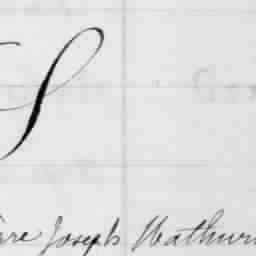 S
re Joseph Mathur